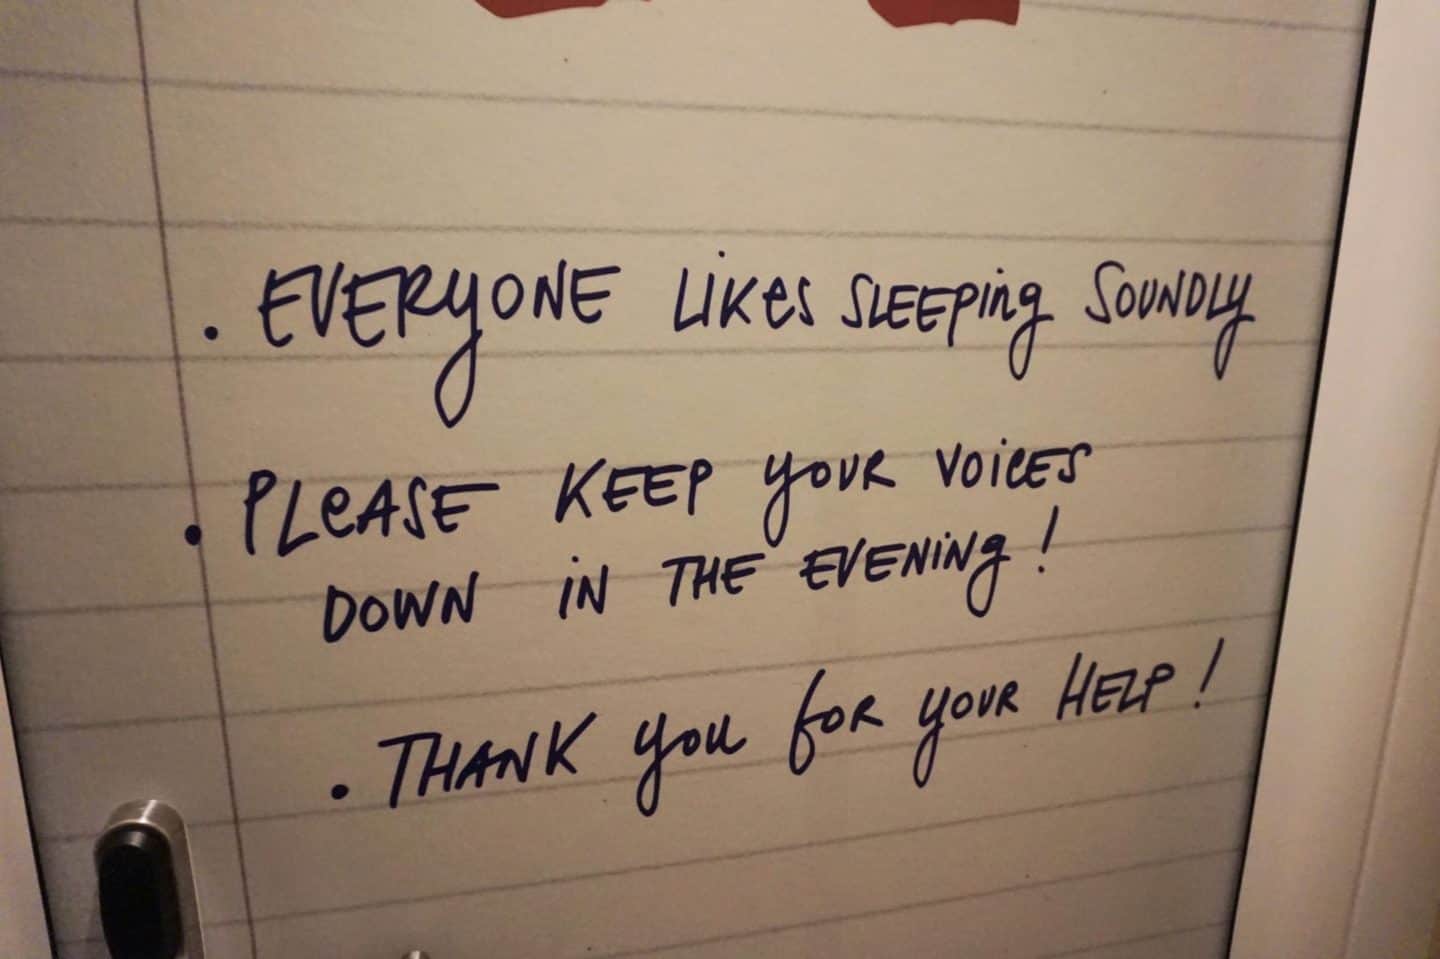 • EVERYONE LIKES SLEEPING SOUNDLY
• PLEASE KEEP YOUR VOICES
DOWN IN THE EVENING!
• THANK YOU FOR YOUR HELP!